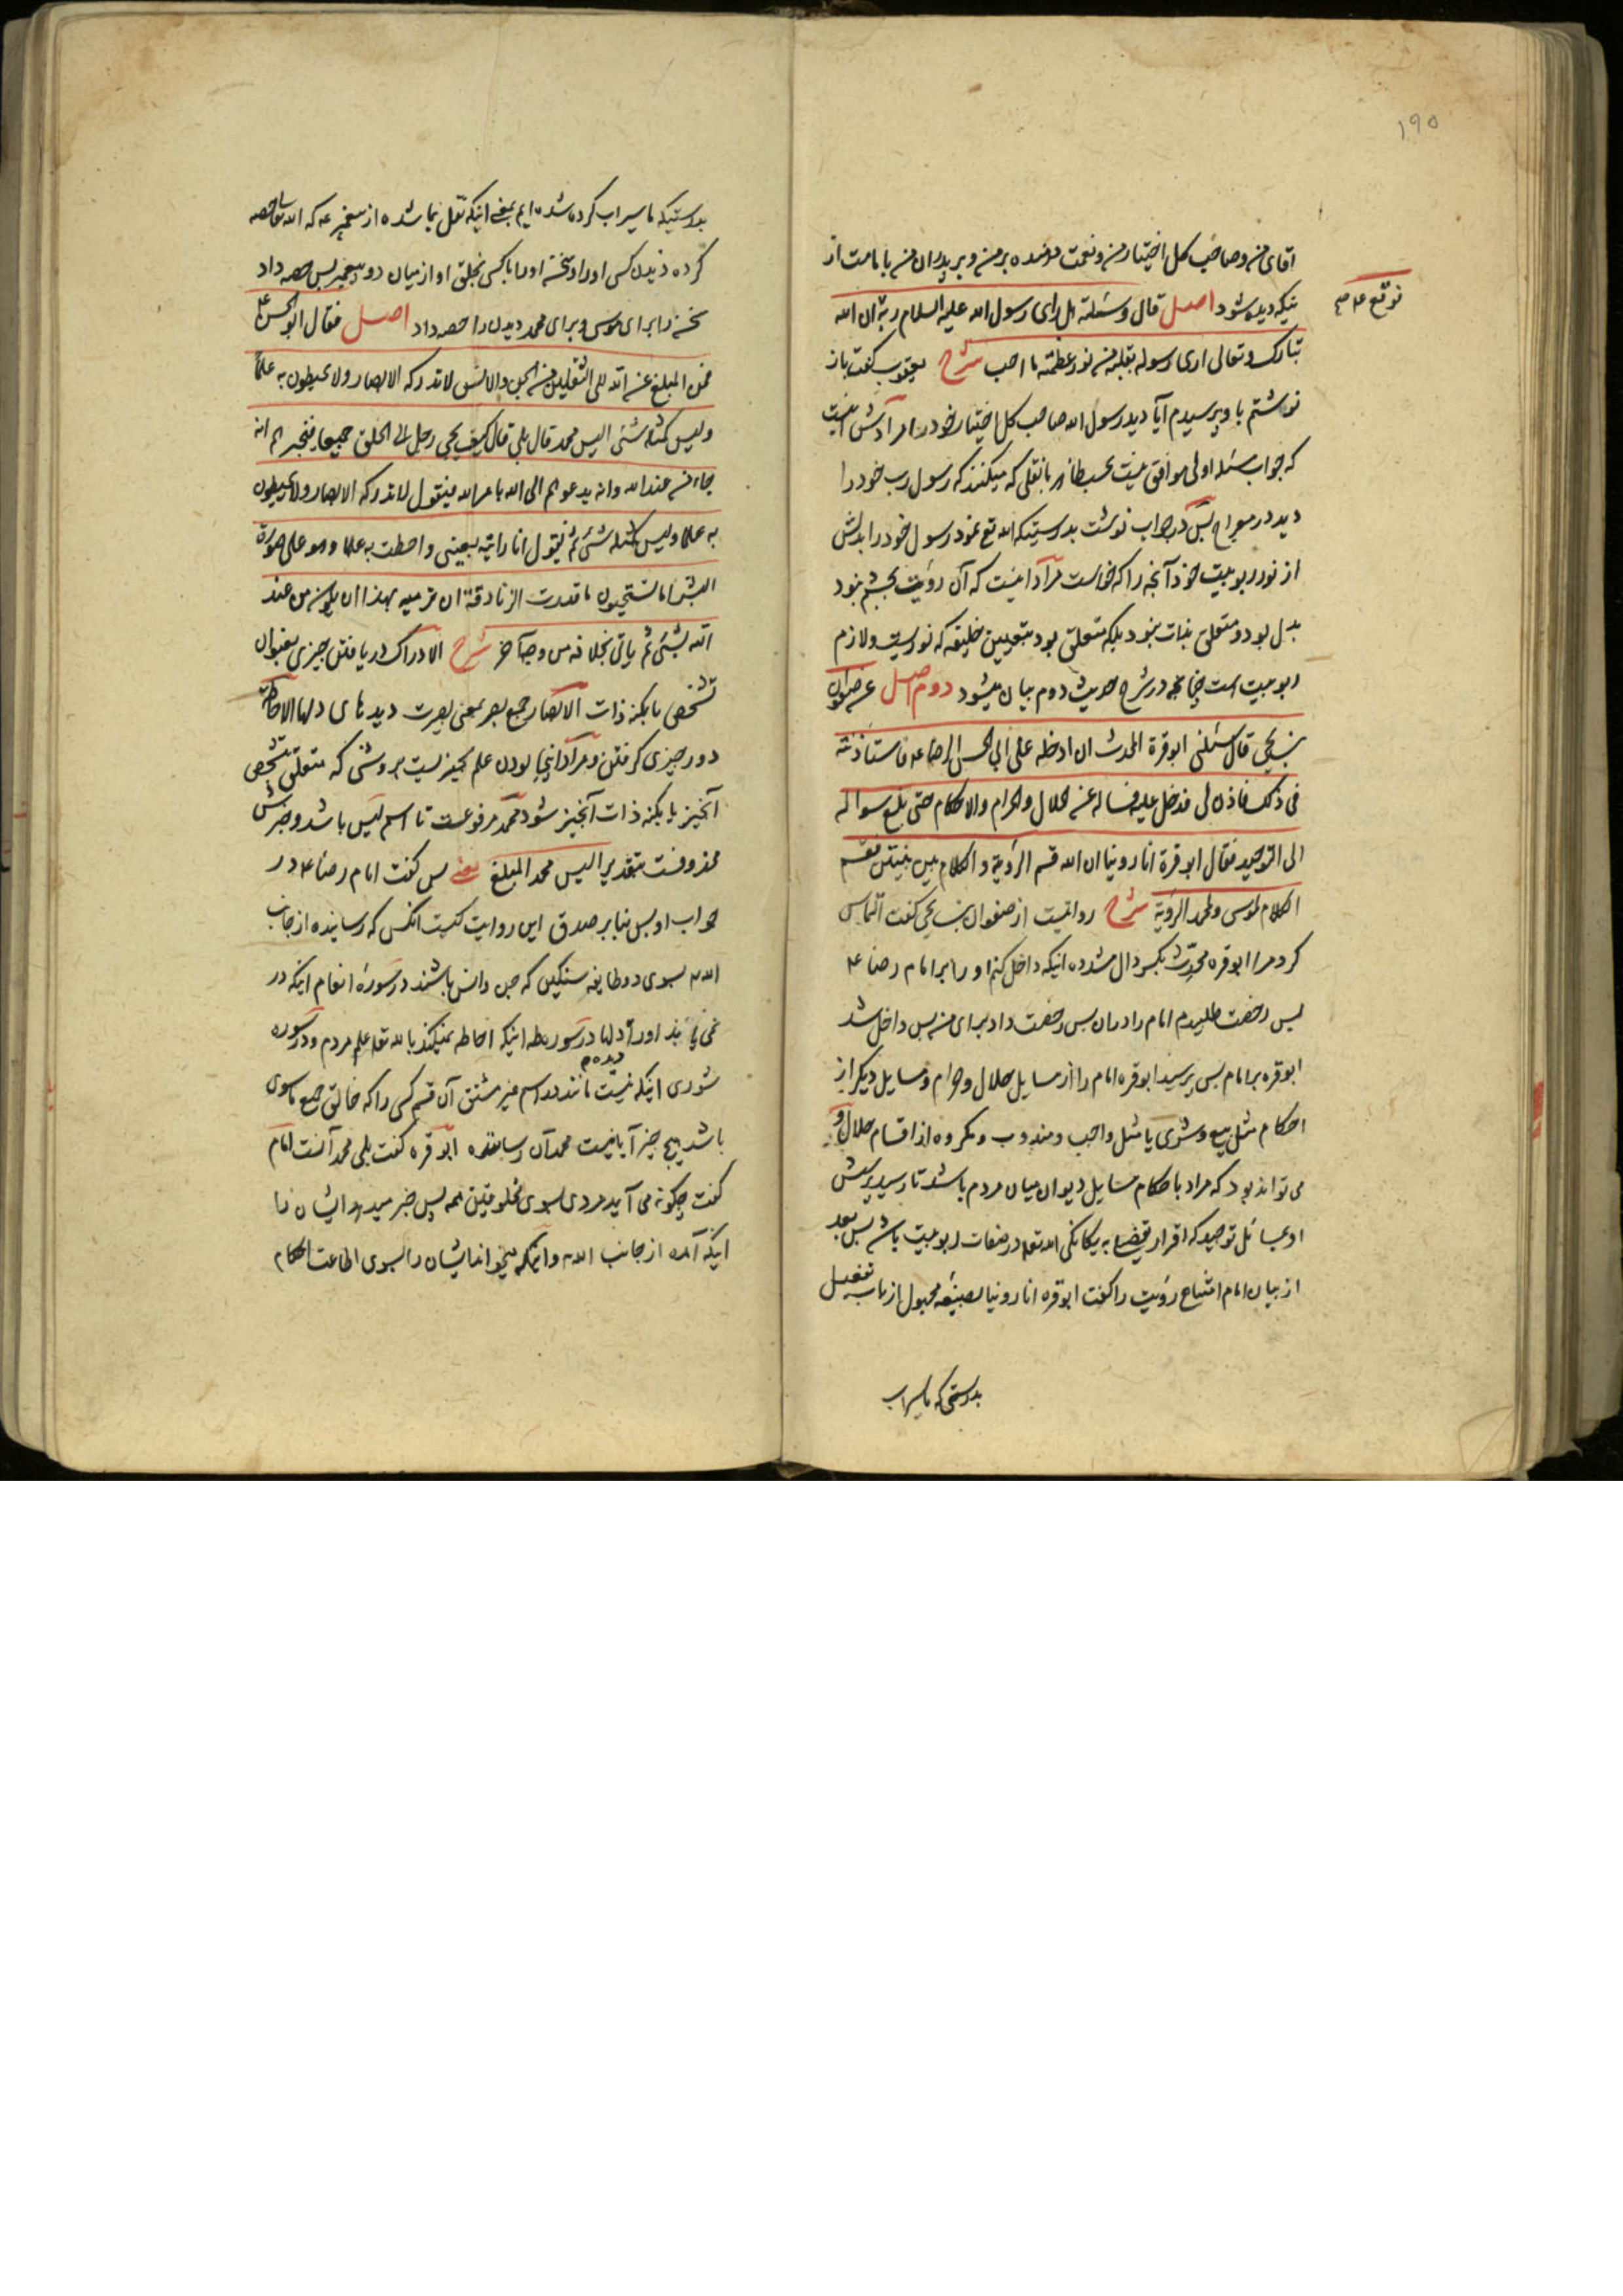 ۱۹۵
آقای من و صاحب کل اختیار من و نعمت دهنده بر من و بر پدران من با بامت از
توقیع ع م
اینکه دیده شود اصل قال و سئلته هل رای رسول الله علیه السلام ربه ان الله
تبارک و تعالی اری رسوله بقلبه من نور عظمته ما احب شرح یعقوب گفت باز
نوشتم باو پرسیدم آیا دید رسول الله صاحب کل اختیار خود را مرادش اینست
که جواب مسئله اولی موافق نیست بحسب ظاهر با نقلی که میکنند که رسول رب خود را
دید در معراج پس در جواب نوشت بدرستیکه الله تع نمود رسول خود را بدلش
از نور ربوبیت خود آنچه را که خواست مراد اینست که آن رؤیت بچشم نبود
بدل بود و متعلق بذات نبود بلکه متعلق بود بتعیین خلیفه که نوریست و لازم
ربوبیت است چنانچه در شرح حدیث دوم بیان میشود دوم اصل عن صفوان
بن یحیی قال سئلنی ابو قرة المحدث ان ادخله علی ابی الحسن الرضا ع فاستأذنته
فی ذلک فاذن لی فدخل علیه فساله عن الحلال والحرام والاحکام حتی بلغ سواله
الی التوحید فقال ابو قرة انا روینا ان الله قسم الرؤیة و الکلام بین نبیین فقسم
الکلام لموسی ولمحمد الرؤیة شرح روایتست از صفوان بن یحیی گفت التماس
کرد مرا ابو قره محدث بکسر دال مشدده اینکه داخل کنم او را بر امام رضا ع
پس رخصت طلبیدم امام را در آن پس رخصت داد برای من پس داخل شد
ابو قره بر امام پس پرسید ابو قره امام را از مسایل حلال و حرام و مسایل دیگر از
احکام مثل بیع و شری یا مثل واجب و مندوب و مکروه از اقسام حلال و
می تواند بود که مراد باحکام مسایل دیوان میان مردم باشد تا رسید پرسش
او بمسائل توحید که اقرار به یگانگی الله تعه در صفات ربوبیت باشد پس بعد
از بیان امام امتناع رؤیت را گفت ابو قره انا روینا بصیغه مجهول از باب تفعیل
بدرستی که ما سیراب
بدرستیکه ما سیراب کرده شده ایم بمعنی اینکه نقل بما شده از پیغمبر ع که الله تعالی حصه
کرده دیدن کسی او را و سخن او را با کسی بخلق او از میان دو پیغمبر پس حصه داد
سخن را برای موسی و برای محمد دیدن را حصه داد اصل فقال ابو الحسن ع
فمن المبلغ عن الله الی الثقلین من الجن والانس لا تدرکه الابصار ولا یحیطون به علماً
ولیس کمثله شئ الیس محمد قال بلی قال کیف یجی رجل الی الخلق جمیعا فیخبرهم انه
جاء من عند الله وانه یدعوهم الی الله بامر الله فیقول لا تدرکه الابصار ولا یحیطون
به علما ولیس کمثله شئ ثم یقول انا رایته بعینی واحطت به علما وهو علی صورة
البشر اما تستحیون ما قدرت الزنادقة ان ترمیه بهذا ان یکون من عند
الله بشئ ثم یاتی بخلافه من وجه آخر شرح الادراک دریافتن چیزی بعنوان
تشخص یا بکنه ذات الابصار جمع بصر بمعنی بصیرت دیدهای دلها الاحاطة
دور چیزی گرفتن و مراد اینجا بودن علم بچیزیست بروشنی که متعلق بتشخص
آنچیز یا بکنه ذات آنچیز شود محمد مرفوعست تا اسم لیس باشد و خبرش
محذوفست بتقدیر الیس محمد المبلغ یعنی پس گفت امام رضا ع در
جواب او پس بنابر صدق این روایت کیست آنکس که رساننده از جانب
الله بسوی دو طایفه سنگین که جن وانس باشند در سورهٔ انعام اینکه در
نمی یابند او را دلها در سوره طه اینکه احاطه نمیکند بالله تعه علم مردم و در سوره
شوری اینکه نیست مانند او اسم غیر مشتق آن قسم کسی را که خالق جمیع ماسوی
دیده
باشد هیچ چیز آیا نیست محمد آن رساننده ابو قره گفت بلی محمد آنست امام
گفت چگونه می آید مردی بسوی مخلوقین همه پس خبر میدهد ایشان را
اینکه آمده از جانب الله و اینکه میخواند ایشان را بسوی اطاعت احکام